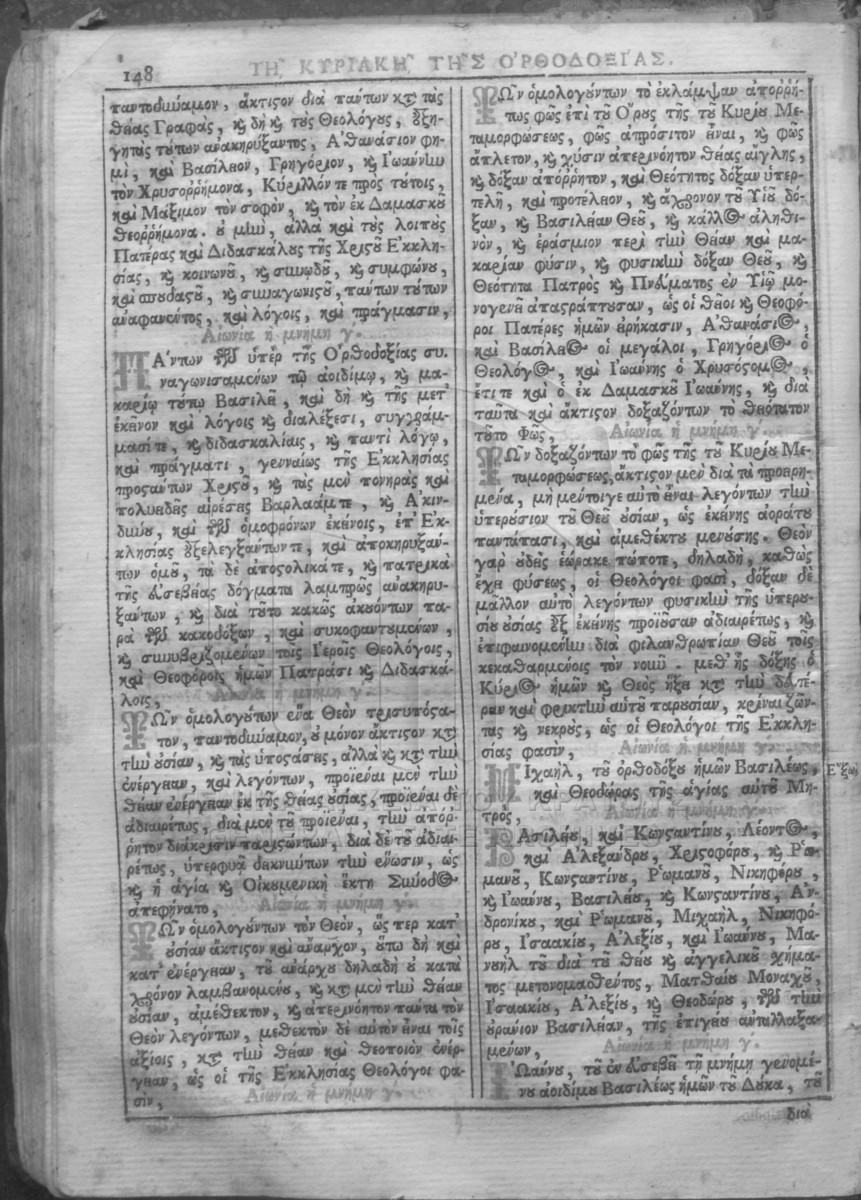 148
ΤΗ͂ ΚΥΡΙΑΚΗ͂ ΤΗ͂Σ Ο’ΡΘΟΔΟΞΙΆΣ.
παντοδύναμον, ἄκτιστον διὰ πάντων κατὰ τὰς
θείας Γραφὰς, καὶ δὴ καὶ τοὺς Θεολόγους, ἐξη-
γητὰς τούτων ἀνακηρύξαντος, Ἀθανάσιον φη-
μὶ, καὶ Βασίλειον, Γρηγόριον, καὶ Ἰωάννην
τὸν Χρυσοῤῥήμονα, Κύριλλόν τε πρὸς τούτοις,
καὶ Μάξιμον τὸν σοφὸν, καὶ τὸν ἐκ Δαμασκοῦ
Θεοῤῥήμονα. οὐ μὴν, ἀλλὰ καὶ τοὺς λοιποὺς
Πατέρας καὶ Διδασκάλους τῆς Χριστοῦ Ἐκκλη-
σίας, καὶ κοινωνοῦ, καὶ συνῳδοῦ, καὶ συμφώνου,
καὶ σπουδαστοῦ, καὶ συναγωνιστοῦ, πάντων τούτων
ἀναφανέντος, καὶ λόγοις, καὶ πράγμασιν,
Αἰωνία ἡ μνήμη γ΄.
Πάντων τῶν ὑπὲρ τῆς Ὀρθοδοξίας συ-
ναγωνισαμένων τῷ ἀοιδίμῳ, καὶ μα-
καρίῳ τούτῳ Βασιλεῖ, καὶ δὴ καὶ τῆς μετ'
ἐκεῖνον καὶ λόγοις καὶ διαλέξεσι, συγγράμ-
μασί τε, καὶ διδασκαλίαις, καὶ παντὶ λόγῳ,
καὶ πράγματι, γενναίως τῆς Ἐκκλησίας
προστάντων Χριστοῦ, καὶ τὰς μὲν πονηρὰς καὶ
πολυειδεῖς αἱρέσεις Βαρλαάμ τε, καὶ Ἀκιν-
δύνου, καὶ τῶν ὁμοφρόνων ἐκείνοις, ἐπ' Ἐκ-
κλησίας ἐξελεγξάντων τε, καὶ ἀποκηρυξάν-
των ὁμοῦ, τὰ δὲ ἀποστολικά τε, καὶ πατρικὰ
τῆς εὐσεβείας δόγματα λαμπρῶς ἀνακηρυ-
ξάντων, καὶ διὰ τοῦτο κακῶς ἀκουόντων πα-
ρὰ τῶν κακοδόξων, καὶ συκοφαντουμένων,
καὶ συνυβριζομένων τοῖς Ἱεροῖς Θεολόγοις,
καὶ Θεοφόροις ἡμῶν Πατράσι καὶ Διδασκά-
λοις, Αἰωνία ἡ μνήμη γ΄.
Τῶν ὁμολογούντων ἕνα Θεὸν τρισυπόστα-
τον, παντοδύναμον, οὐ μόνον ἄκτιστον κατὰ
τὴν οὐσίαν, καὶ τὰς ὑποστάσεις, ἀλλὰ καὶ κατὰ τὴν
ἐνέργειαν, καὶ λεγόντων, προϊέναι μὲν τὴν
θείαν ἐνέργειαν ἐκ τῆς θείας οὐσίας, προϊέναι δὲ
ἀδιαιρέτως, διὰ μὲν τοῦ προϊέναι, τὴν ἀπόῤ-
ῥητον διάκρισιν παριστώντων, διὰ δὲ τοῦ ἀδιαι-
ρέτως, ὑπερφυᾶ δεικνύντων τὴν ἕνωσιν, ὡς
καὶ ἡ ἁγία καὶ Οἰκουμενικὴ ἕκτη Σύνοδος
ἀπεφήνατο, Αἰωνία ἡ μνήμη γ΄.
Τῶν ὁμολογούντων τὸν Θεὸν, ὥς περ κατ'
οὐσίαν ἄκτιστον καὶ ἄναρχον, οὕτω δὴ καὶ
κατ' ἐνέργειαν, τοῦ ἀνάρχου δηλαδὴ οὐ κατὰ
χρόνον λαμβανομένου, καὶ κατὰ μὲν τὴν θείαν
οὐσίαν, ἀμέθεκτον, καὶ ἀπερινόητον πάντα τὸν
Θεὸν λεγόντων, μεθεκτὸν δὲ αὐτὸν εἶναι τοῖς
ἀξίοις, κατὰ τὴν θείαν καὶ θεοποιὸν ἐνέρ-
γειαν, ὡς οἱ τῆς Ἐκκλησίας Θεολόγοι φα-
σὶν, Αἰωνία ἡ μνήμη γ΄.
Τῶν ὁμολογούντων τὸ ἐκλάμψαν ἀποῤῥή-
τως φῶς ἐπὶ τοῦ Ὄρους τῆς τοῦ Κυρίου Με-
ταμορφώσεως, φῶς ἀπρόσιτον εἶναι, καὶ φῶς
ἄπλετον, καὶ χύσιν ἀπερινόητον θείας αἴγλης,
καὶ δόξαν ἀπόῤῥητον, καὶ Θεότητος δόξαν ὑπερ-
τελῆ, καὶ προτέλειον, καὶ ἄχρονον τοῦ Υἱοῦ δό-
ξαν, καὶ Βασιλείαν Θεοῦ, καὶ κάλλος ἀληθι-
νὸν, καὶ ἐράσμιον περὶ τὴν θείαν καὶ μα-
καρίαν φύσιν, καὶ φυσικὴν δόξαν Θεοῦ, καὶ
Θεότητα Πατρὸς καὶ Πνεύματος ἐν Υἱῷ μο-
νογενεῖ ἀπαστράπτουσαν, ὡς οἱ θεῖοι καὶ Θεοφό-
ροι Πατέρες ἡμῶν εἰρήκασιν, Ἀθανάσιος,
καὶ Βασίλειος οἱ μεγάλοι, Γρηγόριος ὁ
Θεολόγος, καὶ Ἰωάννης ὁ Χρυσόστομος,
ἔτι τε καὶ ὁ ἐκ Δαμασκοῦ Ἰωάννης, καὶ διὰ
ταῦτα καὶ ἄκτιστον δοξαζόντων τὸ θειότατον
τοῦτο Φῶς, Αἰωνία ἡ μνήμη γ΄.
Τῶν δοξαζόντων τὸ φῶς τῆς τοῦ Κυρίου Με-
ταμορφώσεως, ἄκτιστον μὲν διὰ τὰ προειρη-
μένα, μὴ μέντοιγε αὐτὸ εἶναι λεγόντων τὴν
ὑπερούσιον τοῦ Θεοῦ οὐσίαν, ὡς ἐκείνης ἀοράτου
παντάπασι, καὶ ἀμεθέκτου μενούσης. Θεὸν
γὰρ οὐδεὶς ἑώρακε πώποτε, δηλαδὴ, καθὼς
ἔχει φύσεως, οἱ Θεολόγοι φασὶ, δόξαν δὲ
μᾶλλον αὐτὸ λεγόντων φυσικὴν τῆς ὑπερου-
σίου οὐσίας ἐξ ἐκείνης προϊοῦσαν ἀδιαιρέτως, καὶ
ἐπιφαινομένην διὰ φιλανθρωπίαν Θεοῦ τοῖς
κεκαθαρμένοις τὸν νοῦν. μεθ' ἧς δόξης ὁ
Κύριος ἡμῶν καὶ Θεὸς ἥξει κατὰ τὴν δευτέ-
ραν καὶ φρικτὴν αὐτοῦ παρουσίαν, κρῖναι ζῶν-
τας καὶ νεκροὺς, ὡς οἱ Θεολόγοι τῆς Ἐκκλη-
σίας φασὶν, Αἰωνία ἡ μνήμη γ΄.
Μιχαὴλ, τοῦ ὀρθοδόξου ἡμῶν Βασιλέως, Ἔξω
καὶ Θεοδώρας τῆς ἁγίας αὐτοῦ Μη-
τρὸς, Αἰωνία ἡ μνήμη γ΄.
Βασιλείου, καὶ Κωνσταντίνου, Λέοντος,
καὶ Ἀλεξάνδρου, Χριστοφόρου, καὶ Ῥω-
μανοῦ, Κωνσταντίνου, Ῥωμανοῦ, Νικηφόρου,
καὶ Ἰωάννου, Βασιλείου, καὶ Κωνσταντίνου, Ἀν-
δρονίκου, καὶ Ῥωμανοῦ, Μιχαὴλ, Νικηφό-
ρου, Ἰσαακίου, Ἀλεξίου, καὶ Ἰωάννου, Μα-
νουὴλ τοῦ διὰ τοῦ θείου καὶ ἀγγελικοῦ σχήμα-
τος μετονομασθέντος, Ματθαίου Μοναχοῦ,
Ἰσαακίου, Ἀλεξίου, καὶ Θεοδώρου, τῶν τὴν
οὐράνιον Βασιλείαν, τῆς ἐπιγείου ἀνταλλαξα-
μένων, Αἰωνία ἡ μνήμη γ΄.
Ἰωάννου, τοῦ ἐν εὐσεβεῖ τῇ μνήμῃ γενομέ-
νου ἀοιδίμου Βασιλέως ἡμῶν τοῦ Δούκα, τοῦ
διὰ